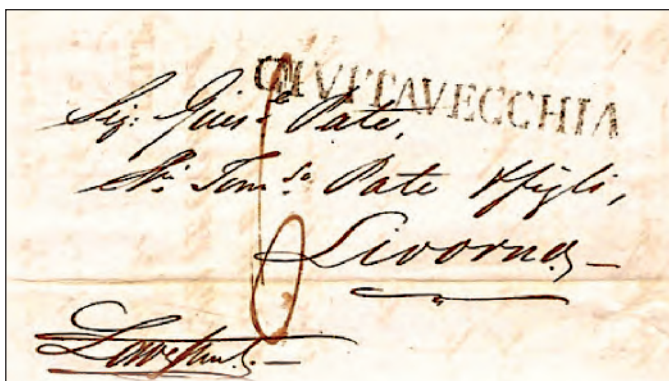 CIVITAVECCHIA
Sig. Gius.e Pate,
Tom.so Pate & figli,
Livorno